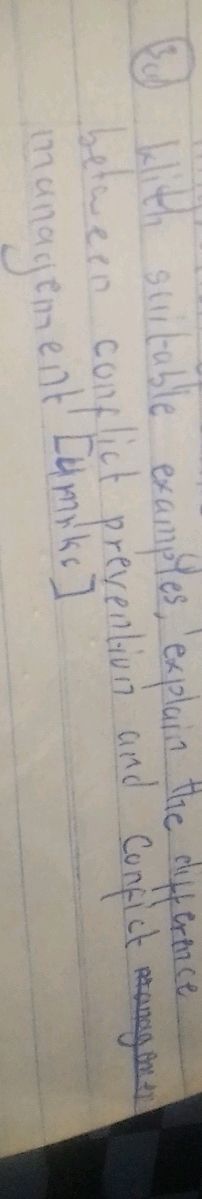 3a) With suitable examples, explain the difference
between conflict prevention and Confict
management [4mrks]